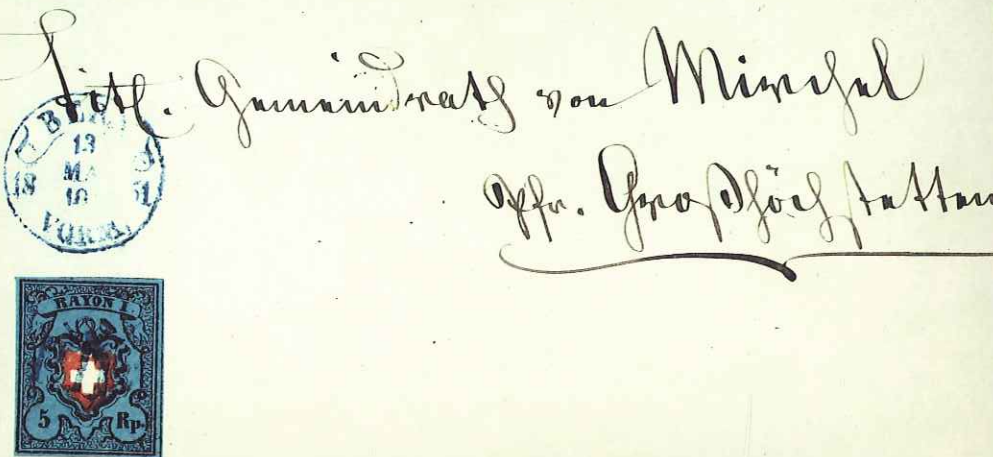 Titl. Gemeindrath von Mirchel
Pfr. Großhöchstetten
BERN
13
MA
18 10 51
VORM.
RAYON I
5 Rp.